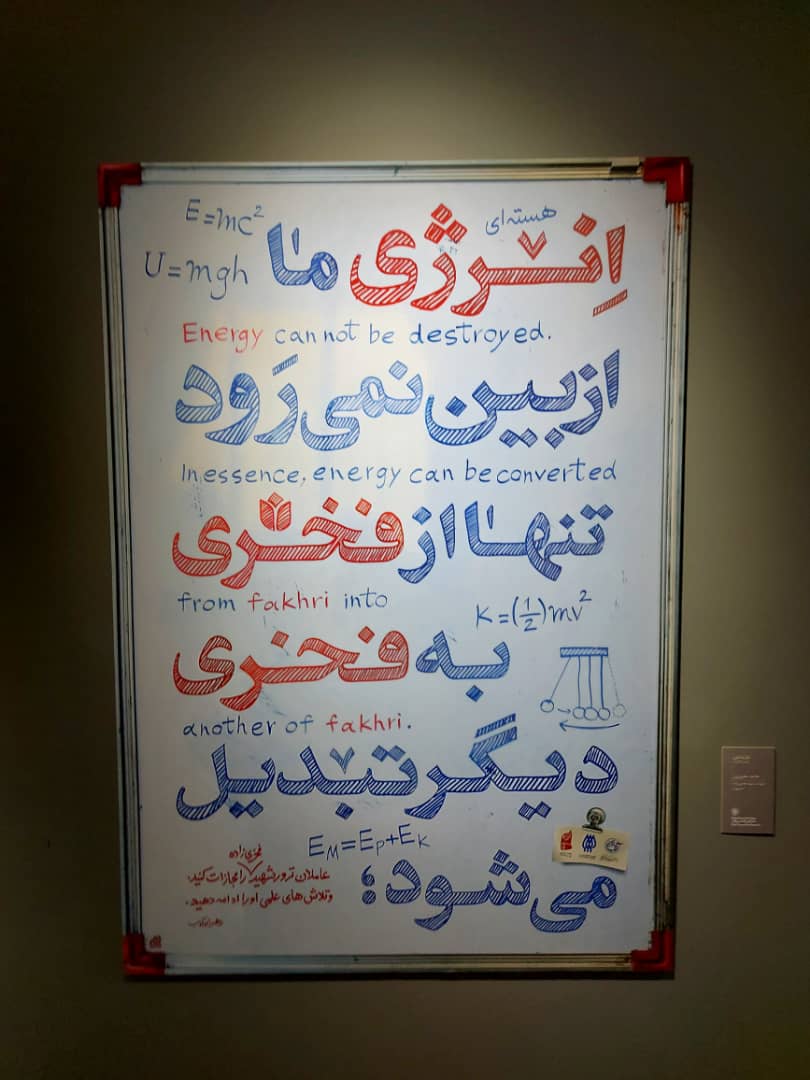 هسته‌ای
E=mc²
اِنرژی ما
U=mgh
Energy can not be destroyed.
از بین نمی‌رَود
In essence, energy can be converted
تنها از فخری
from fakhri into
K=(1/2)mv²
به فخری
another of fakhri.
دیگر تبدیل
E_M=E_P+E_K
می‌شود؛
فخری‌زاده
عاملان ترور شهید را مجازات کنید
و تلاش های علمی او را ادامه دهید.